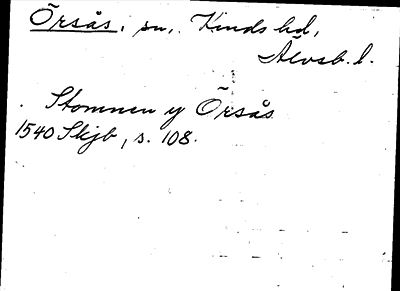 Örsås, sn, Kinds hd,
Älvsb. l.
Stommen y Örsås
1540 Skjb, s. 108.